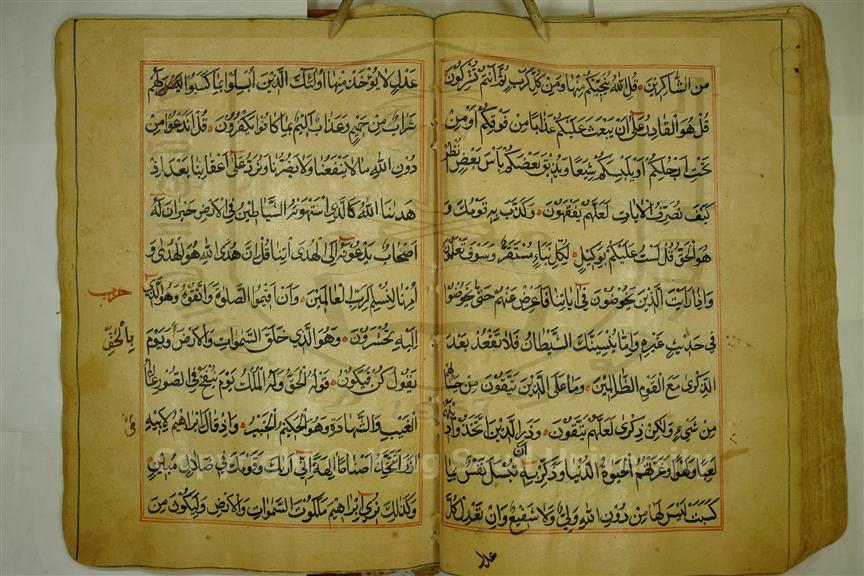 من الشاكرين قل الله ينجيكم منها ومن كل كرب ثم انتم تشركون
قل هو القادر على ان يبعث عليكم عذابا من فوقكم او من
تحت ارجلكم او يلبسكم شيعا ويذيق بعضكم باس بعض انظر
كيف نصرف الايات لعلهم يفقهون وكذب به قومك و
هو الحق قل لست عليكم بوكيل لكل نباء مستقر وسوف تعلمون
واذا رايت الذين يخوضون في اياتنا فاعرض عنهم حتى يخوضوا
في حديث غيره واما ينسينك الشيطان فلا تقعد بعد
الذكرى مع القوم الظالمين وما على الذين يتقون من حسابهم
من شيء ولكن ذكرى لعلهم يتقون وذر الذين اتخذوا دينهم
لعبا ولهوا وغرتهم الحيوة الدنيا وذكر به ان تبسل نفس بما
كسبت ليس لها من دون الله ولي ولا شفيع وان تعدل كل
عدل
عدل لا يؤخذ منها اولئك الذين ابسلوا بما كسبوا لهم
شراب من حميم وعذاب اليم بما كانوا يكفرون قل اندعوا من
دون الله ما لا ينفعنا ولا يضرنا ونرد على اعقابنا بعد اذ
هدينا الله كالذي استهوته الشياطين في الارض حيران له
اصحاب يدعونه الى الهدى ائتنا قل ان هدى الله هو الهدى و
امرنا لنسلم لرب العالمين وان اقيموا الصلوة واتقوه وهو الذي
اليه تحشرون وهو الذي خلق السموات والارض
بالحق
ويوم
يقول كن فيكون قوله الحق وله الملك يوم ينفخ في الصور عالم
الغيب والشهادة وهو الحكيم الخبير واذ قال ابراهيم لابيه
ازر اتتخذ اصناما الهة اني اريك وقومك في ضلال مبين
وكذلك نري ابراهيم ملكوت السموات والارض وليكون من
حزب